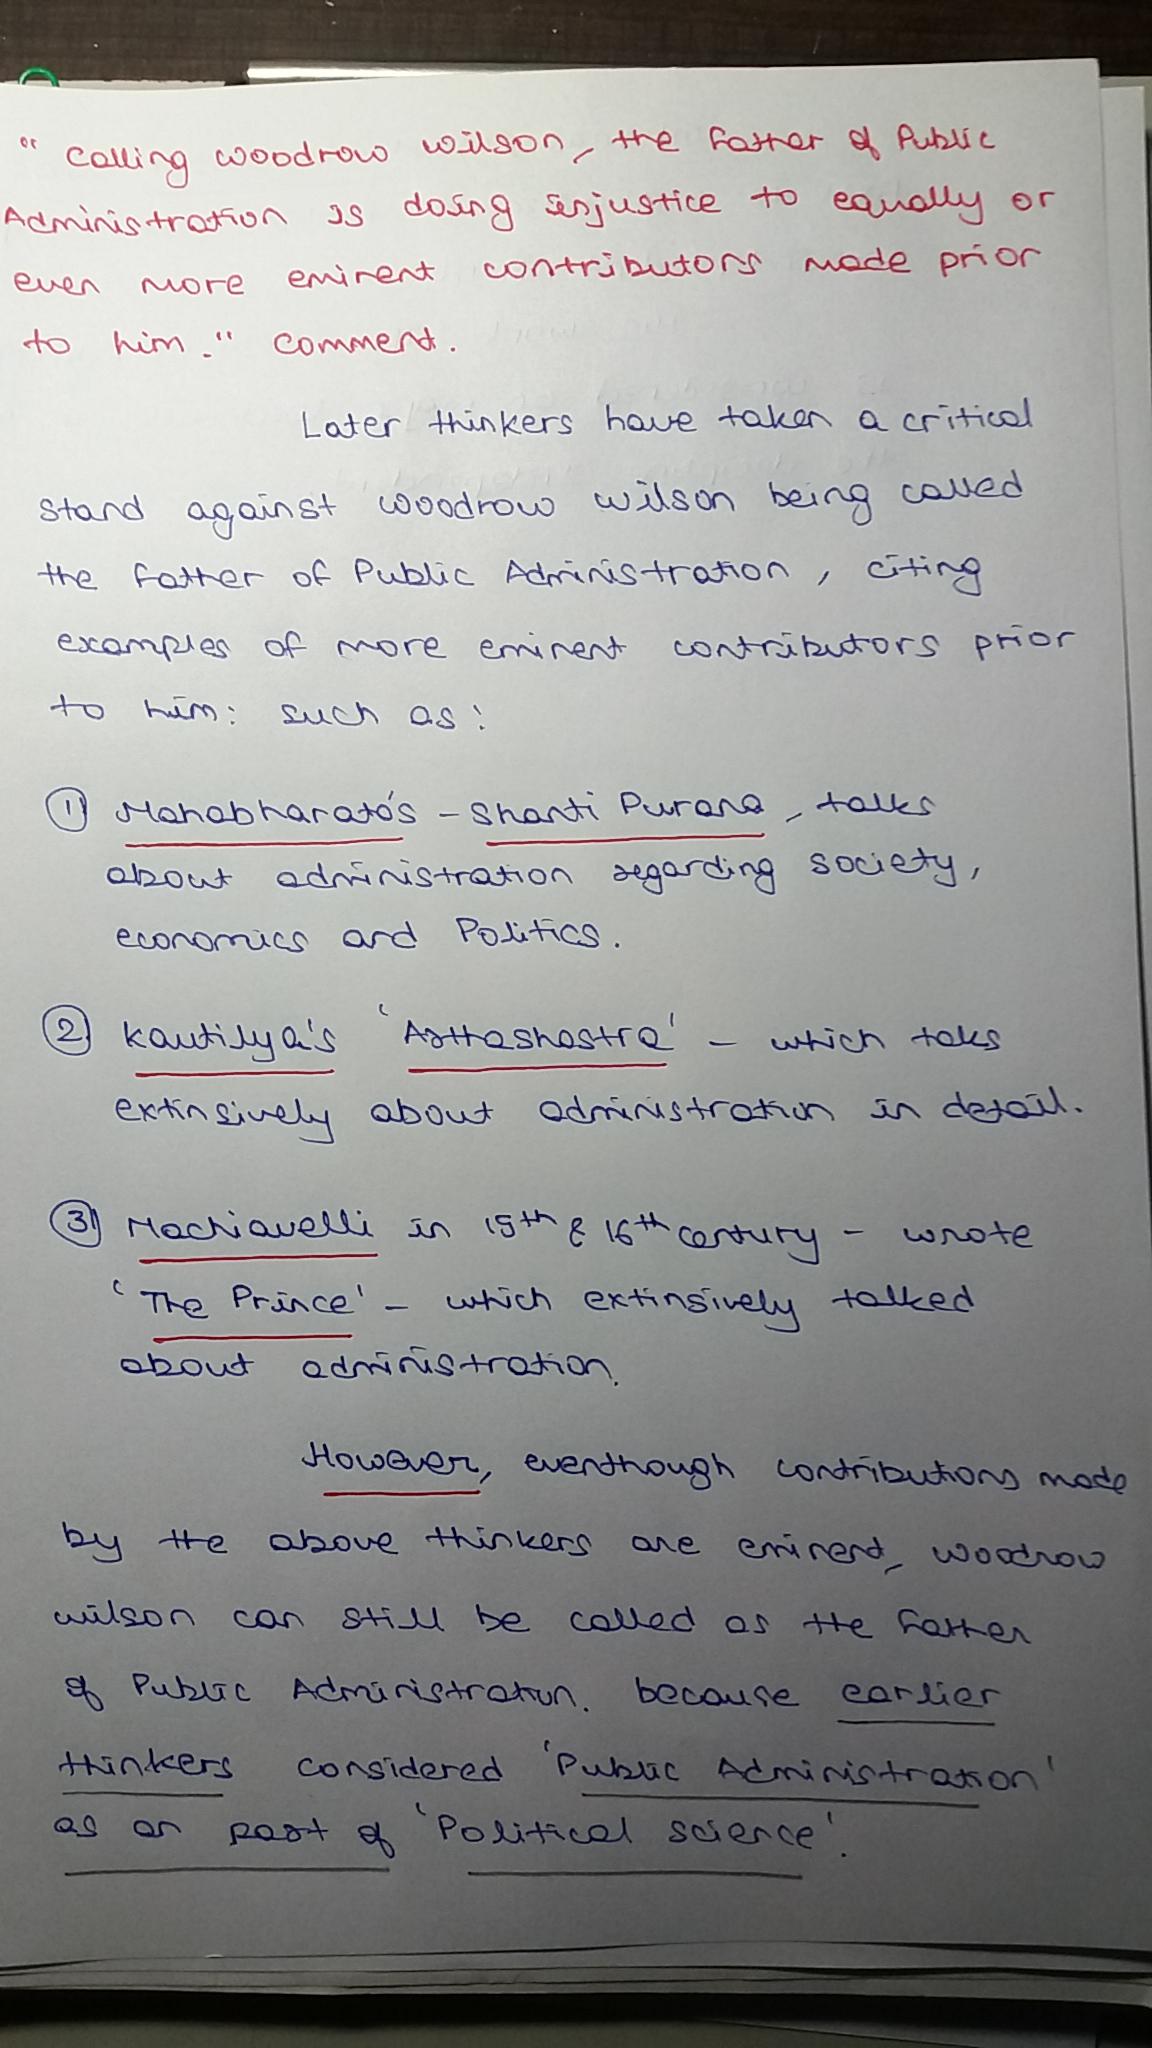 " Calling woodrow wilson, the Father of Public
Administration is doing injustice to equally or
even more eminent contributors made prior
to him." comment.
Later thinkers have taken a critical
stand against woodrow wilson being called
the Father of Public Administration, citing
examples of more eminent contributors prior
to him: such as:
① Mahabharata's - Shanti Purana, talks
about administration regarding society,
economics and Politics.
② Kautilya's 'Arthashastra' - which taks
extinsively about administration in detail.
③ Machiavelli in 15th & 16th century - wrote
'The Prince' - which extinsively talked
about administration.
However, eventhough contributions made
by the above thinkers are eminent, woodrow
wilson can still be called as the Father
of Public Administration. because earlier
thinkers considered 'Public Administration'
as an part of 'Political science'.